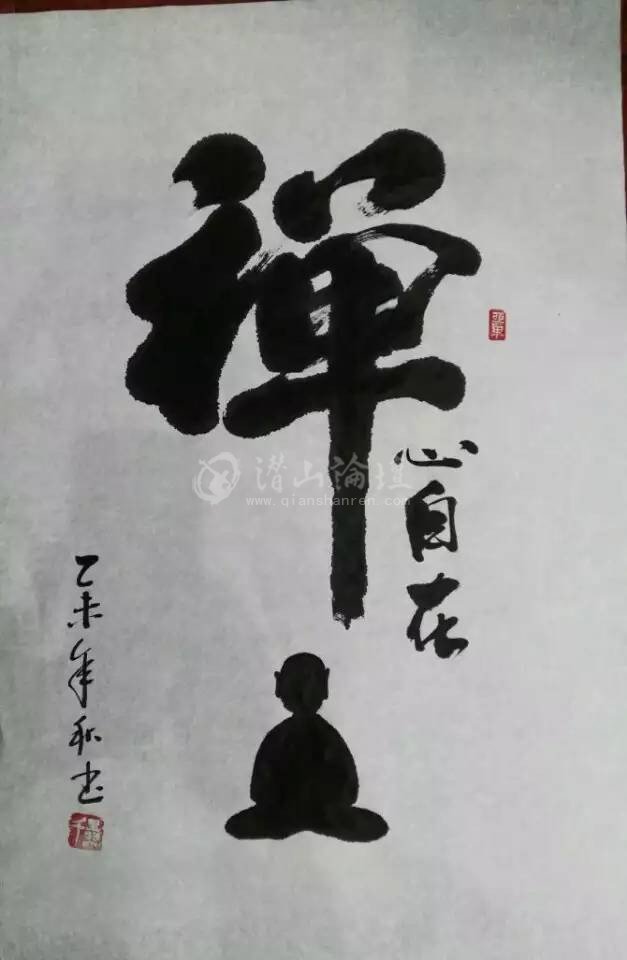 禪
心自在
乙未年秋书
潜山論壇
www.qianshanren.com